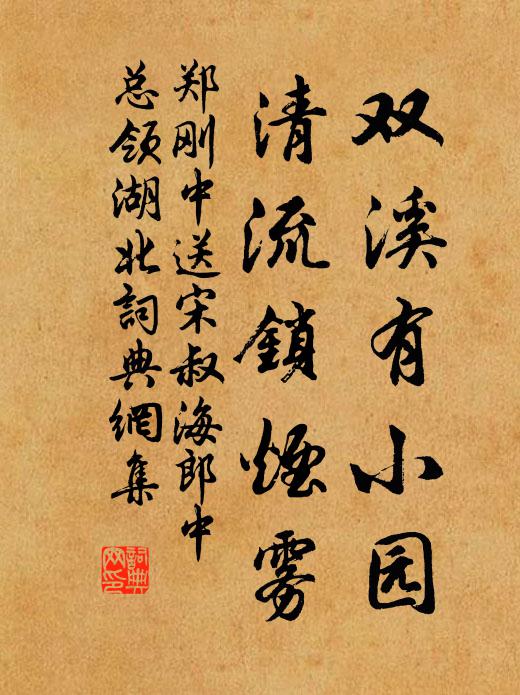 双溪有小园
清流鎖煙雾
郑刚中送宋叔海郎中
总领湖北詞典網集
詞典
网印